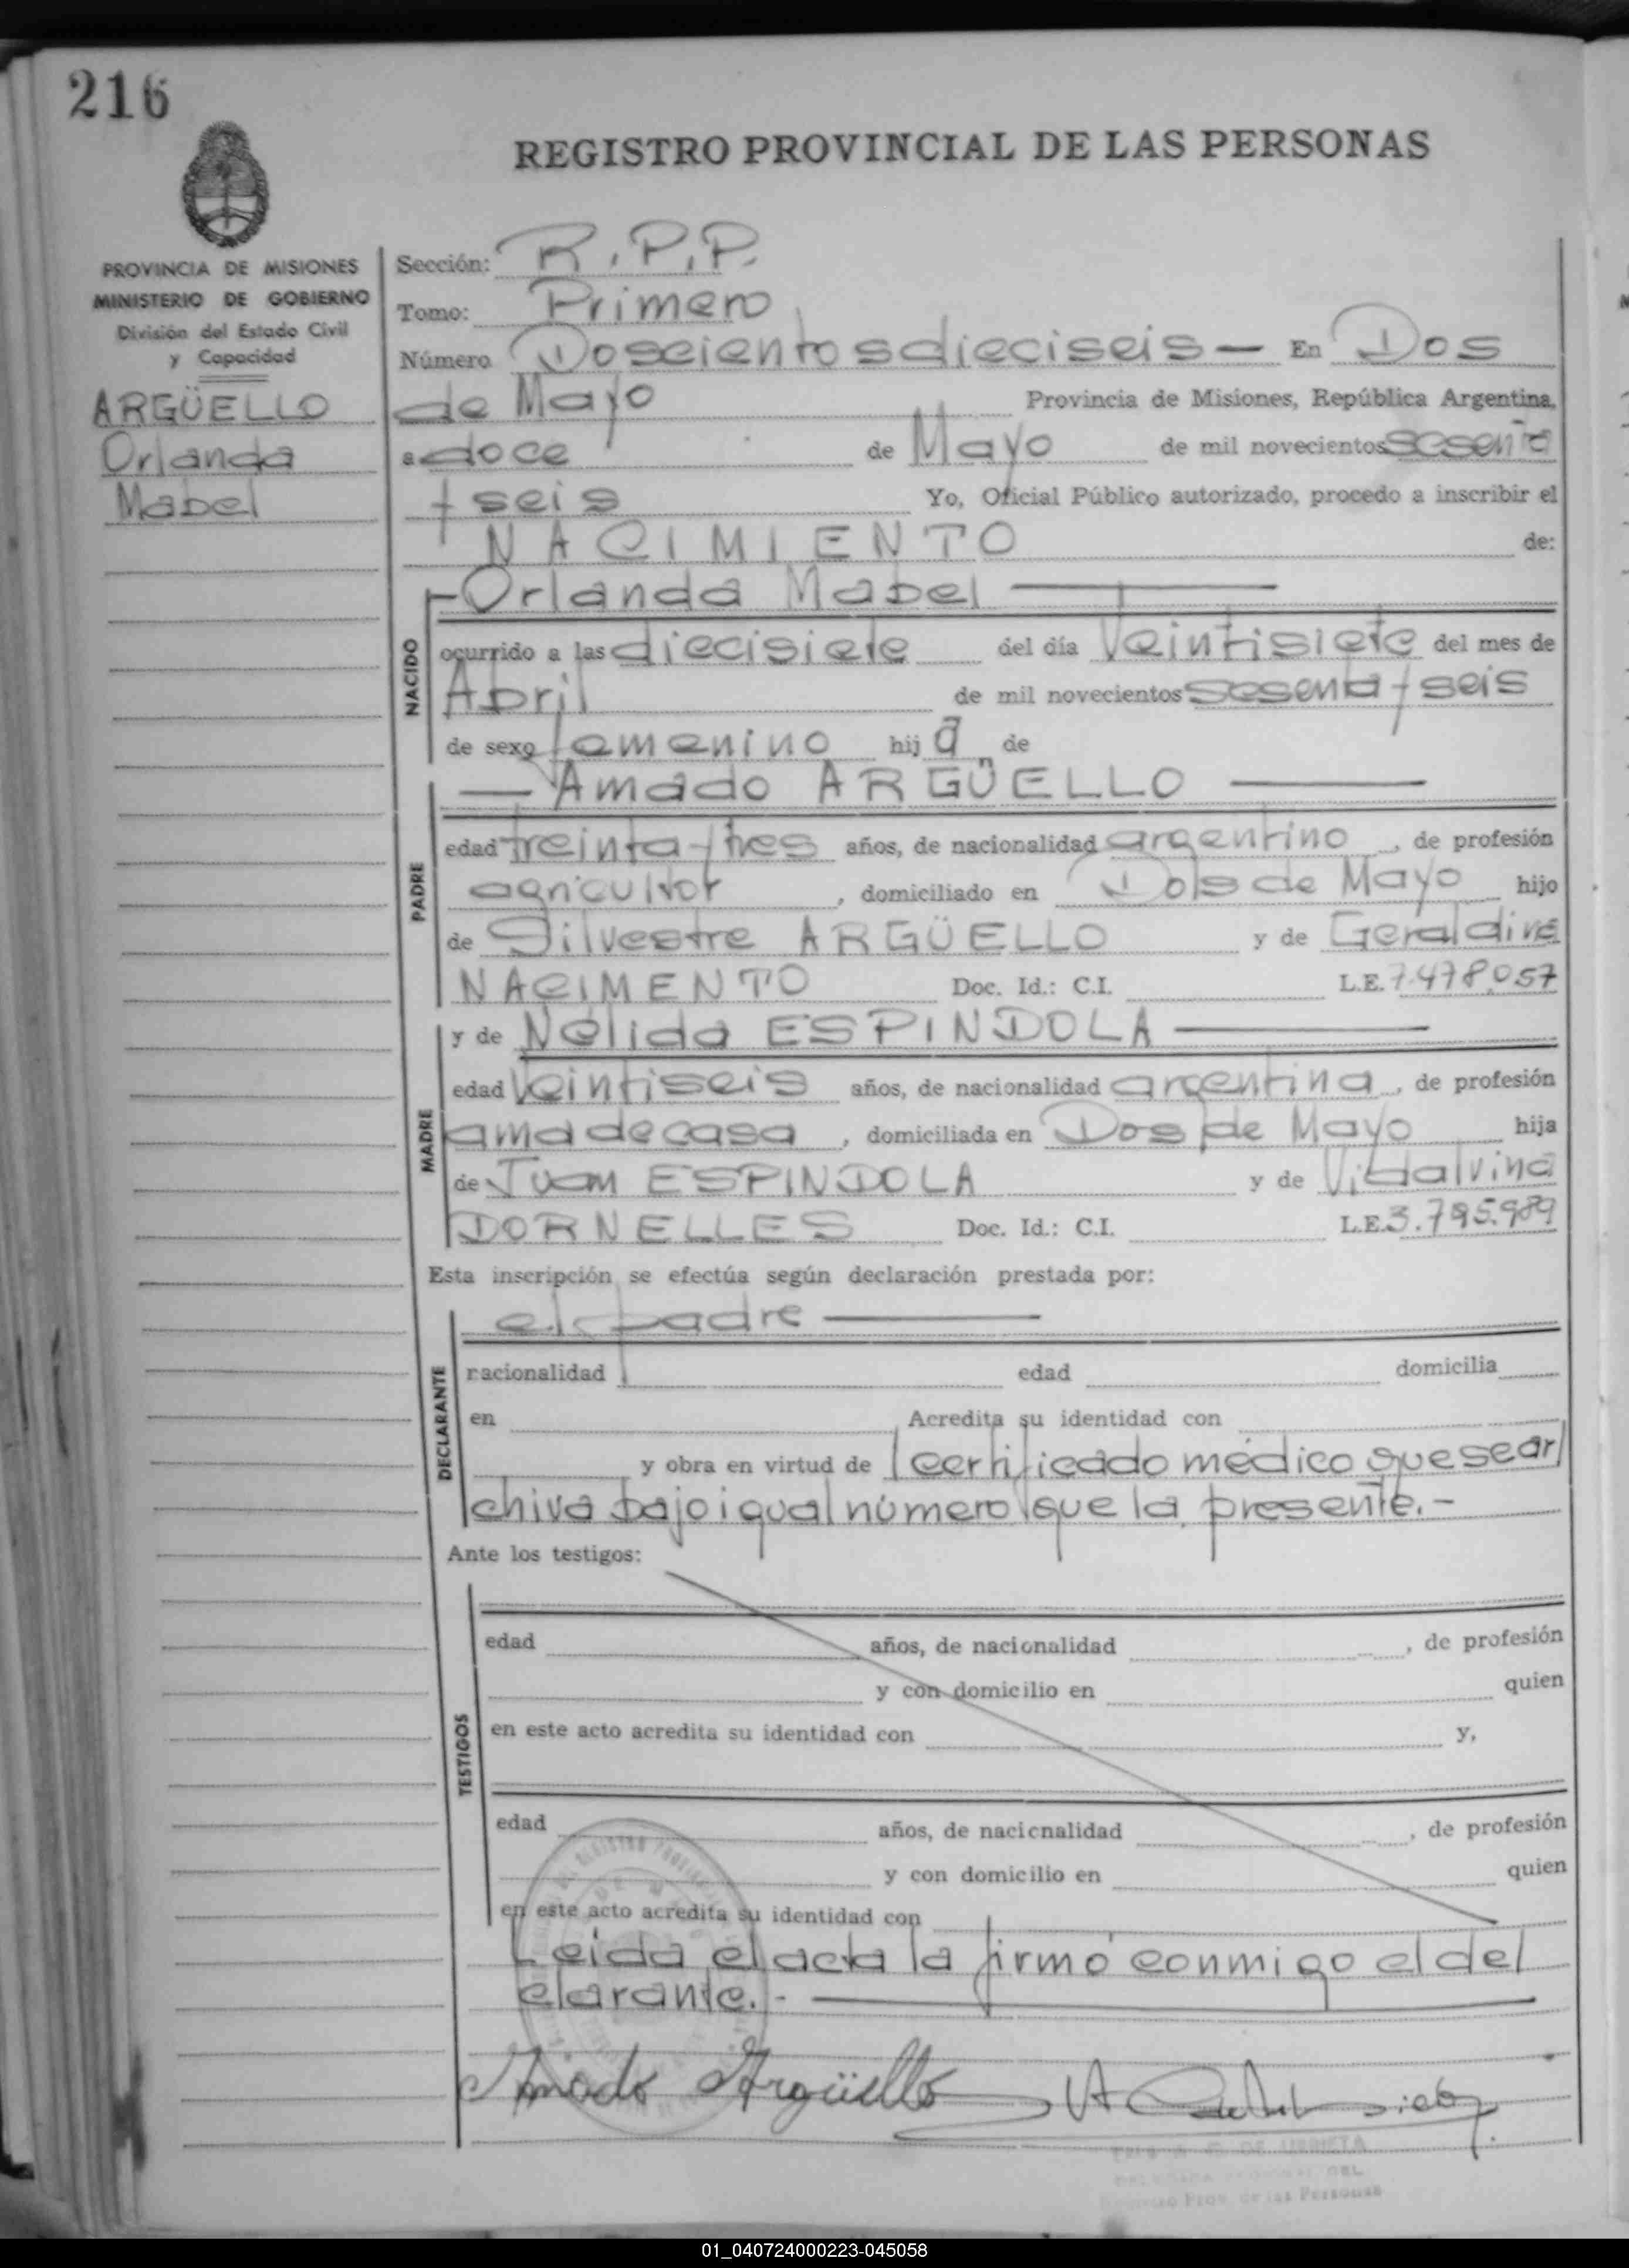 216
REGISTRO PROVINCIAL DE LAS PERSONAS
PROVINCIA DE MISIONES
MINISTERIO DE GOBIERNO
División del Estado Civil
y Capacidad
ARGÜELLO
Orlanda
Mabel
Sección: R.P.P.
Tomo: Primero
Número Doscientos dieciseis — En Dos
de Mayo Provincia de Misiones, República Argentina,
a doce de Mayo de mil novecientos sesenta
y seis Yo, Oficial Público autorizado, procedo a inscribir el
NACIMIENTO de:
NACIDO
- Orlanda Mabel —
ocurrido a las diecisiete del día veintisiete del mes de
Abril de mil novecientos sesenta y seis
de sexo femenino hij a de
PADRE
— Amado ARGÜELLO —
edad treinta y tres años, de nacionalidad argentino, de profesión
agricultor, domiciliado en Dos de Mayo hijo
de Silvestre ARGÜELLO y de Geraldina
NACIMENTO Doc. Id.: C.I. L.E. 7.478.057
MADRE
y de Nélida ESPINDOLA —
edad veintiseis años, de nacionalidad argentina, de profesión
ama de casa, domiciliada en Dos de Mayo hija
de Juan ESPINDOLA y de Vidalvina
DORNELLES Doc. Id.: C.I. L.E. 3.795.989
Esta inscripción se efectúa según declaración prestada por:
DECLARANTE
el padre —
nacionalidad edad domicilia
en Acredita su identidad con
y obra en virtud de certificado médico que se ar
chiva bajo igual número que la presente.-
Ante los testigos:
TESTIGOS
edad años, de nacionalidad , de profesión
y con domicilio en quien
en este acto acredita su identidad con y,
edad años, de nacionalidad , de profesión
y con domicilio en quien
en este acto acredita su identidad con
Leída el acta la firmó conmigo el de
clarante.- —
Amado Argüello
01_040724000223-045058